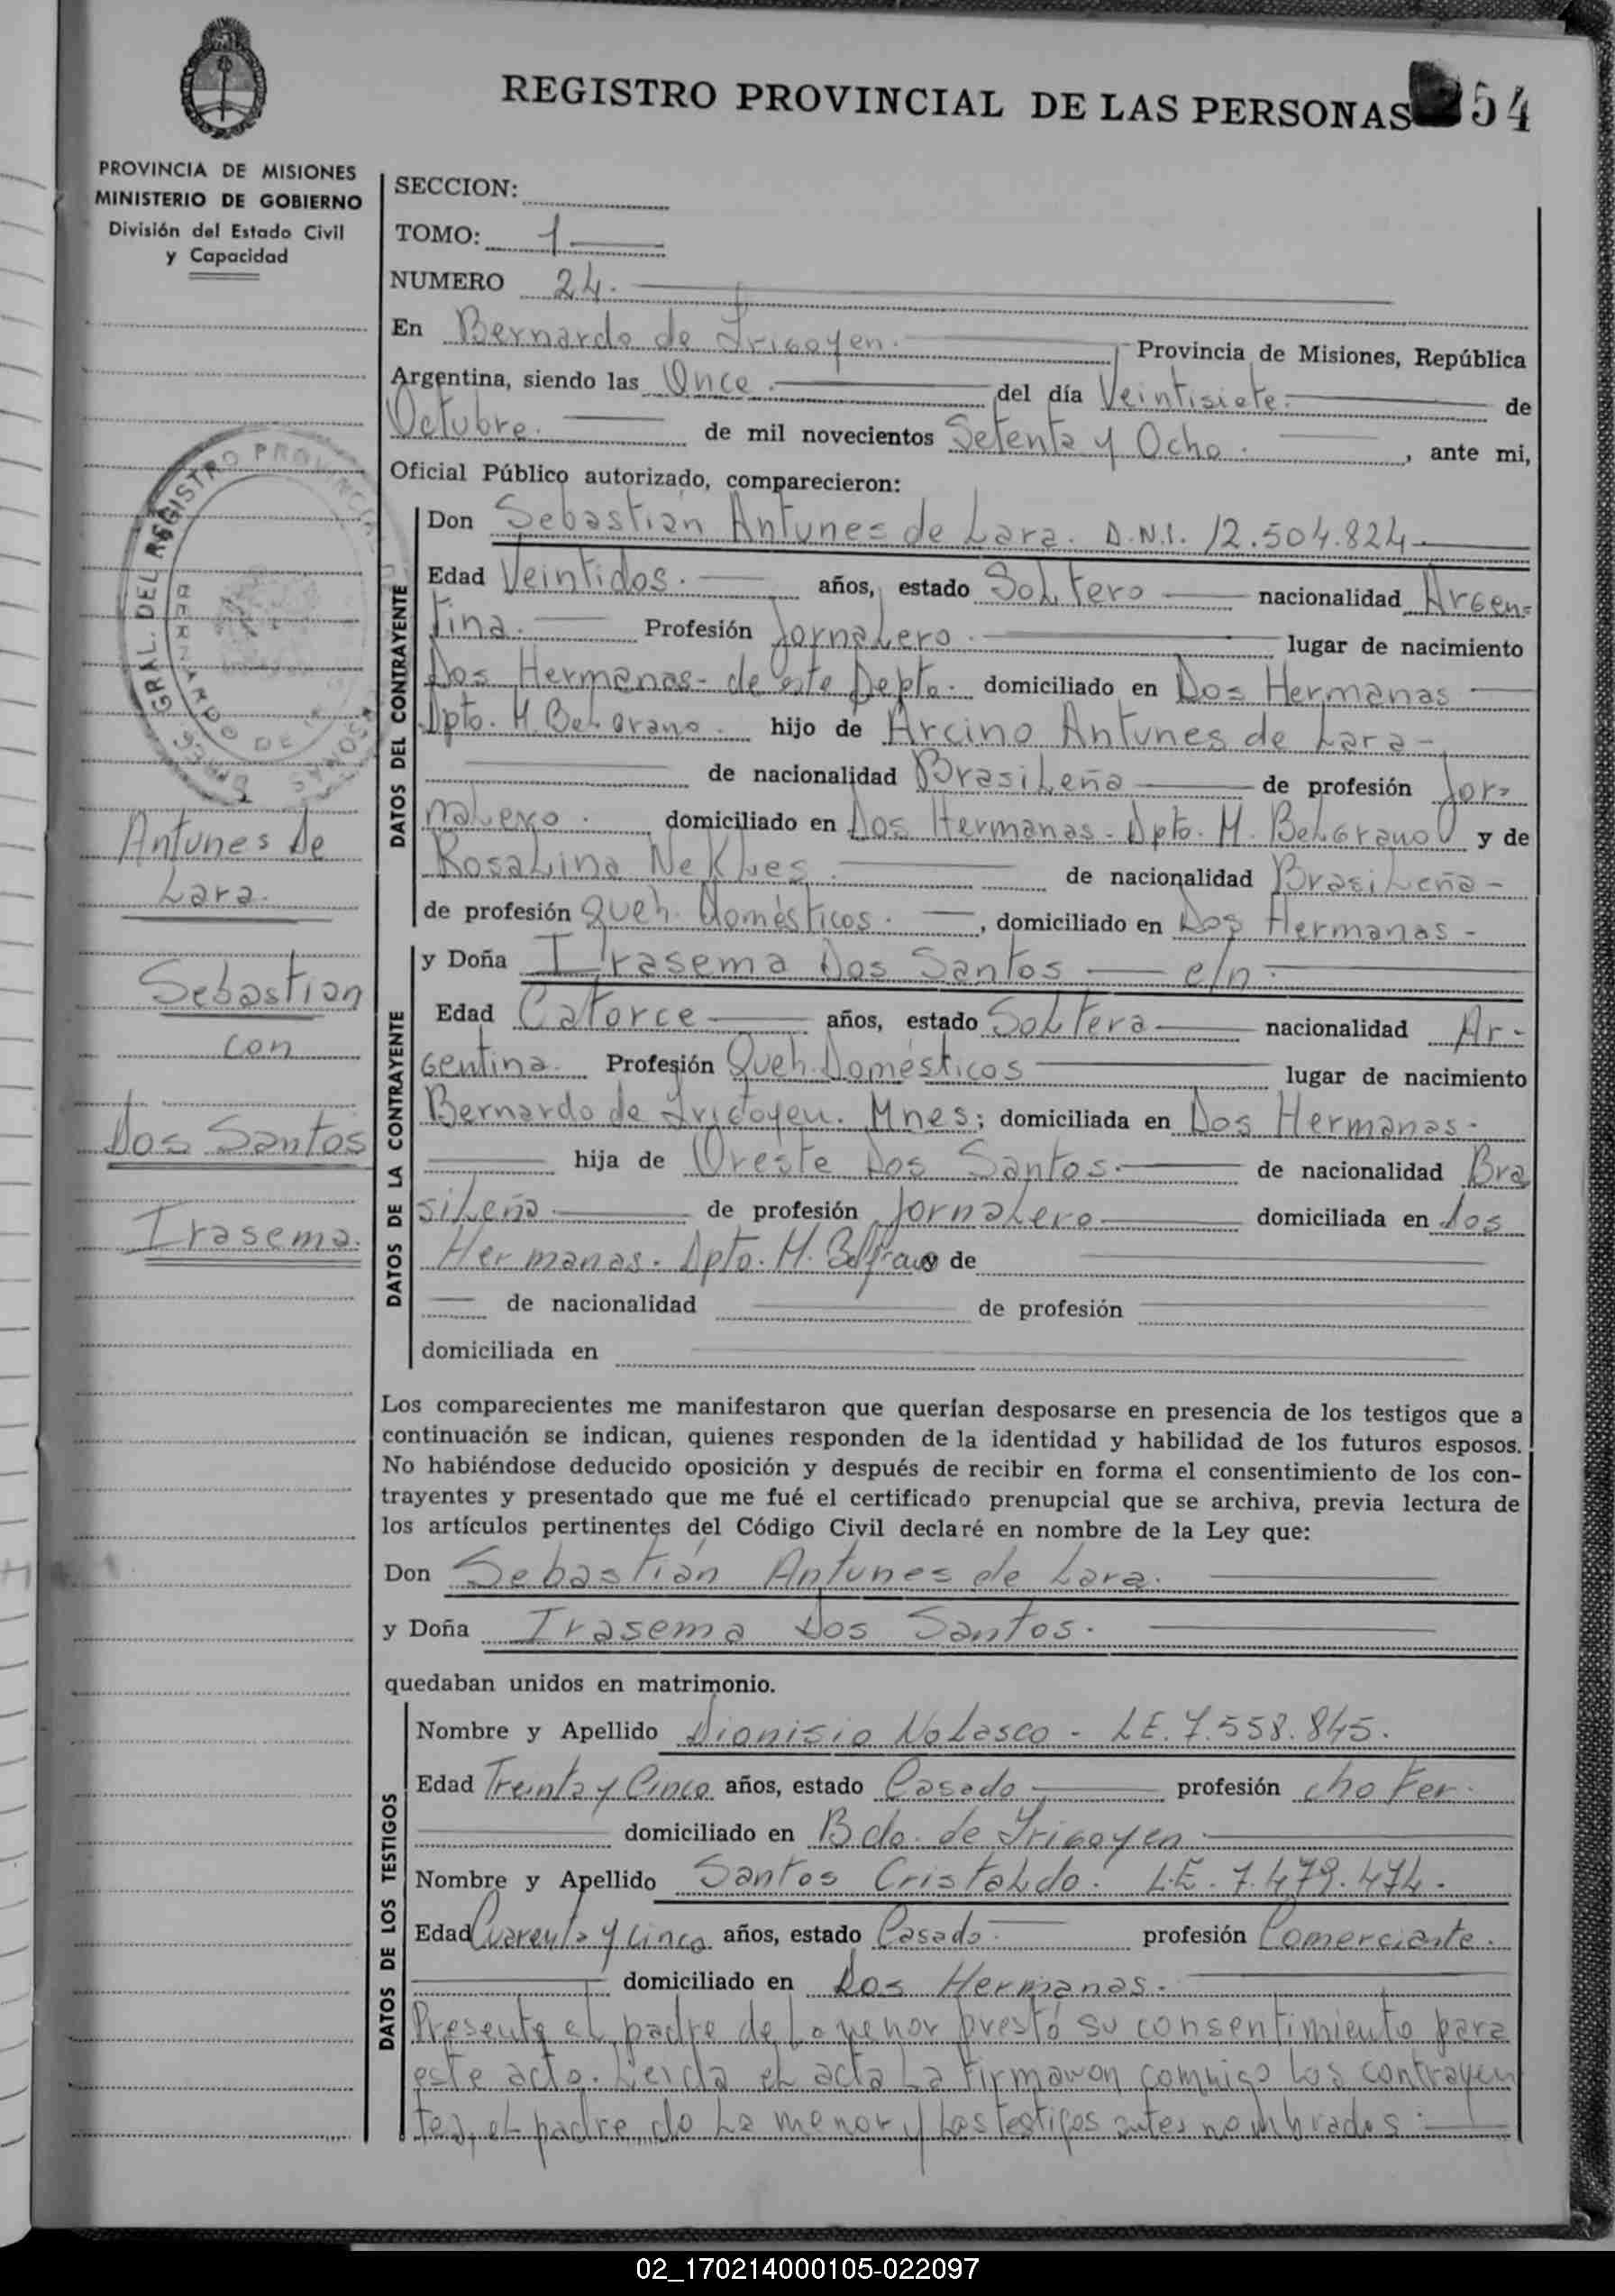 REGISTRO PROVINCIAL DE LAS PERSONAS 54
PROVINCIA DE MISIONES
MINISTERIO DE GOBIERNO
División del Estado Civil
y Capacidad
SECCION:
TOMO: 1
NUMERO 24.
En Bernardo de Irigoyen. Provincia de Misiones, República
Argentina, siendo las Once. del día Veintisiete. de
Octubre. de mil novecientos Setenta y Ocho. , ante mi,
Oficial Público autorizado, comparecieron:
GRAL. DEL REGISTRO PROVINCIAL
BERNARDO DE
Antunes De
Lara.
Sebastian
con
Dos Santos
Irasema.
DATOS DEL CONTRAYENTE
Don Sebastian Antunes de Lara. D.N.I. 12.504.824.
Edad Veintidos. años, estado Soltero nacionalidad Argen=
tina. Profesión Jornalero. lugar de nacimiento
Dos Hermanas- de este Depto. domiciliado en Dos Hermanas
Dpto. M. Belgrano. hijo de Arcino Antunes de Lara-
de nacionalidad Brasileña de profesión Jor=
nalero. domiciliado en Dos Hermanas- Dpto. M. Belgrano y de
Rosalina Nekles. de nacionalidad Brasileña-
de profesión Queh. Domésticos. , domiciliado en Dos Hermanas-
DATOS DE LA CONTRAYENTE
y Doña Irasema Dos Santos c/n.
Edad Catorce años, estado Soltera nacionalidad Ar-
gentina. Profesión Queh. Domésticos lugar de nacimiento
Bernardo de Irigoyen. Mnes; domiciliada en Dos Hermanas.
hija de Oreste Dos Santos. de nacionalidad Bra
sileña. de profesión Jornalero domiciliada en Dos
Hermanas. Dpto. M. Belgrano y de
de nacionalidad de profesión
domiciliada en
Los comparecientes me manifestaron que querían desposarse en presencia de los testigos que a
continuación se indican, quienes responden de la identidad y habilidad de los futuros esposos.
No habiéndose deducido oposición y después de recibir en forma el consentimiento de los con-
trayentes y presentado que me fué el certificado prenupcial que se archiva, previa lectura de
los artículos pertinentes del Código Civil declaré en nombre de la Ley que:
Don Sebastián Antunes de Lara.
y Doña Irasema Dos Santos.
quedaban unidos en matrimonio.
DATOS DE LOS TESTIGOS
Nombre y Apellido Dionisio Nolasco - L.E. 7.558.845.
Edad Treinta y Cinco años, estado Casado profesión chofer.
domiciliado en Bdo. de Irigoyen
Nombre y Apellido Santos Cristaldo. L.E. 7.479.474.
Edad Cuarenta y cinco años, estado Casado. profesión Comerciante.
domiciliado en Dos Hermanas.
Presente el padre de la menor prestó su consentimiento para
este acto. Leida el acta la firmaron conmigo los contrayen
tes, el padre de la menor y los testigos antes nombrados.
02_170214000105-022097